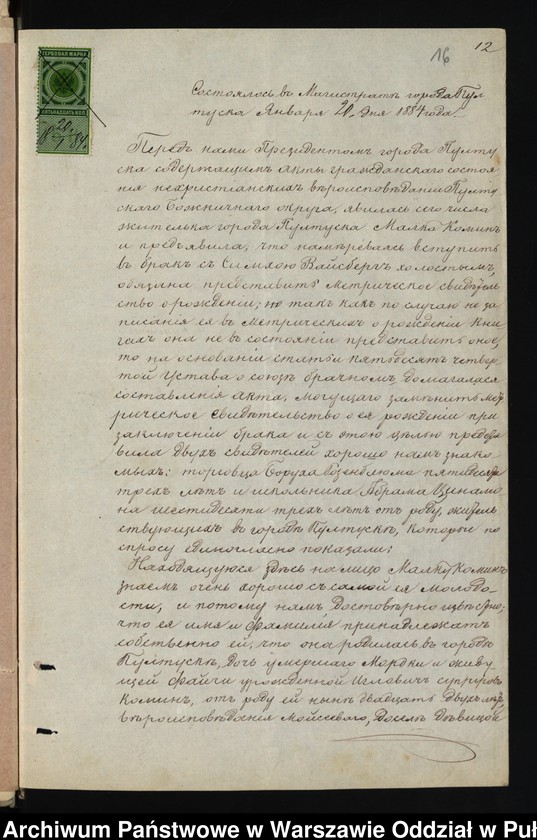 16
12
ГЕРБОВАЯ МАРКА
ПЯТЬНАДЦАТЬ КОП.
20
1 84
Состоялось въ Магистратѣ города Пул
туска Января 20. дня 1884 года.
Передъ нами Президентомъ города Пулту
ска содержащимъ акты гражданскаго состоя
нія нехристіанскихъ вѣроисповѣданій Пулту
скаго Божничнаго округа, явилась сего числа
жителька города Пултуска Малка Коминъ
и предъявила, что намѣреваясь вступить
въ бракъ съ Симхою Вайсбергъ холостымъ,
обязана представить метрическое свидѣтель
ство о рожденіи; но такъ какъ по случаю не за
писанія ея въ метрическихъ о рожденіи кни
гахъ она не въ состояніи представить оное,
то на основаніи статьи пятьдесятъ четвер
той Устава о союзѣ брачномъ домагалася
составленія акта, могущаго замѣнить мет
рическое свидѣтельство о ея рожденіи при
заключеніи брака и съ этою цѣлью предста
вила двухъ свидѣтелей хорошо намъ знако
мыхъ: торговца Боруха пятидесяти
трехъ лѣтъ и школьника Абрама
на шестидесяти трехъ лѣтъ отъ роду, житель
ствующихъ въ городѣ Пултускѣ, которые по
спросу единогласно показали:
Находящуюся здѣсь на лицо Малку Коминъ
знаемъ очень хорошо съ самой ея молодо
сти, и потому намъ достовѣрно извѣстно:
что ея имя и фамилія принадлежатъ
собственно ей, что она родилась въ городѣ
Пултускѣ, дочь умершаго Мордки и живу
щей Файги урожденной супруговъ
Коминъ, отъ роду ей нынѣ двадцать двухъ лѣтъ,
вѣроисповѣданія Мойсеева, доселѣ дѣвицой
Archiwum Państwowe w Warszawie Oddział w Puł